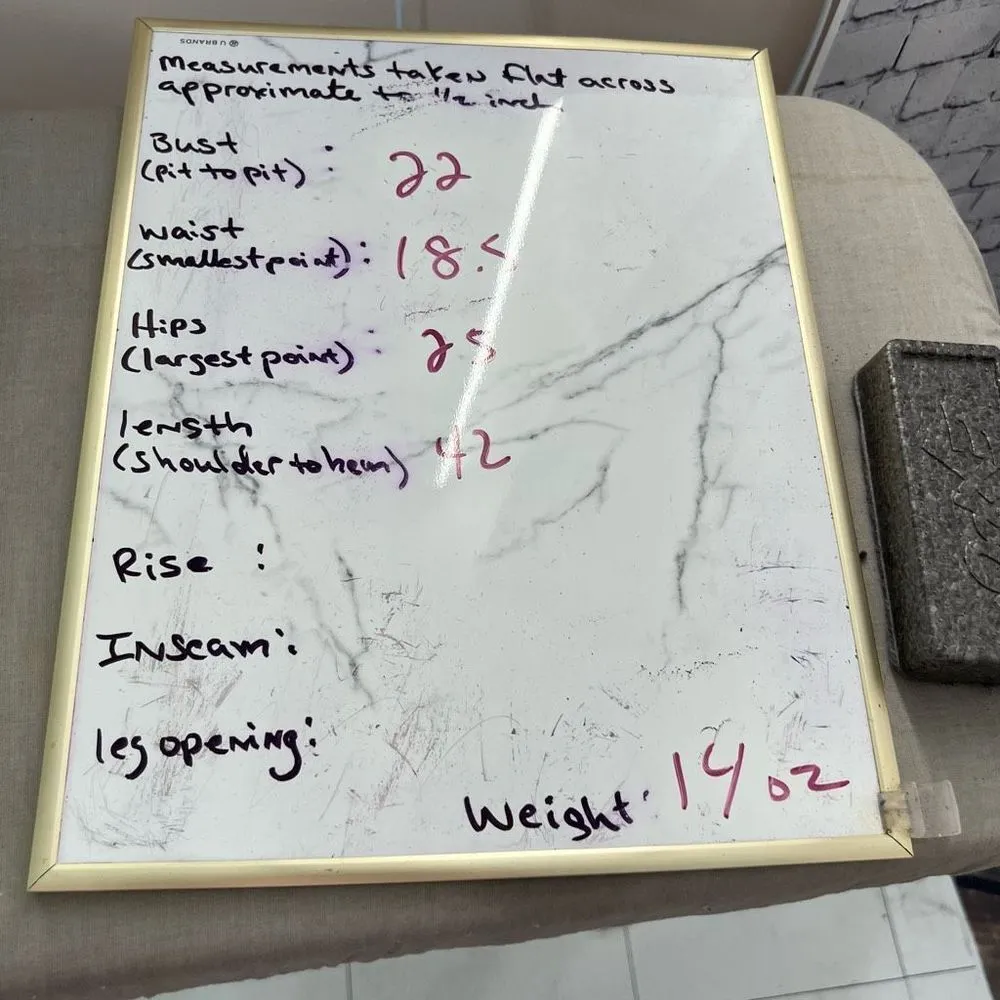 U BRANDS
Measurements taken flat across
approximate to 1/2 inch
Bust
(pit to pit) : 22
Waist
(smallest point) : 18.5
Hips
(largest point) : 25
length
(shoulder to hem) 42
Rise :
Inseam :
leg opening :
Weight : 14 oz